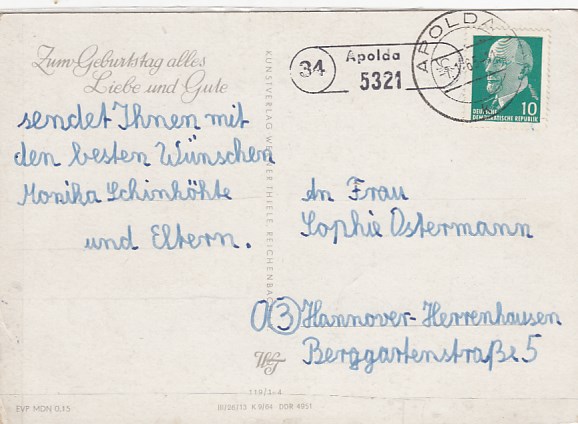 Zum Geburtstag alles
Liebe und Gute
sendet Ihnen mit
den besten Wünschen
Monika Schinköhte
und Eltern.
KUNSTVERLAG WERNER THIELE, REICHENBACH
34
Apolda
5321
APOLDA
10
DEUTSCHE
DEMOKRATISCHE REPUBLIK
An Frau
Sophie Ostermann
(3) Hannover-Herrenhausen
Berggartenstraße 5
WT
119/1-4
III/26/13 K 9/64 DDR 4951
EVP MDN 0.15